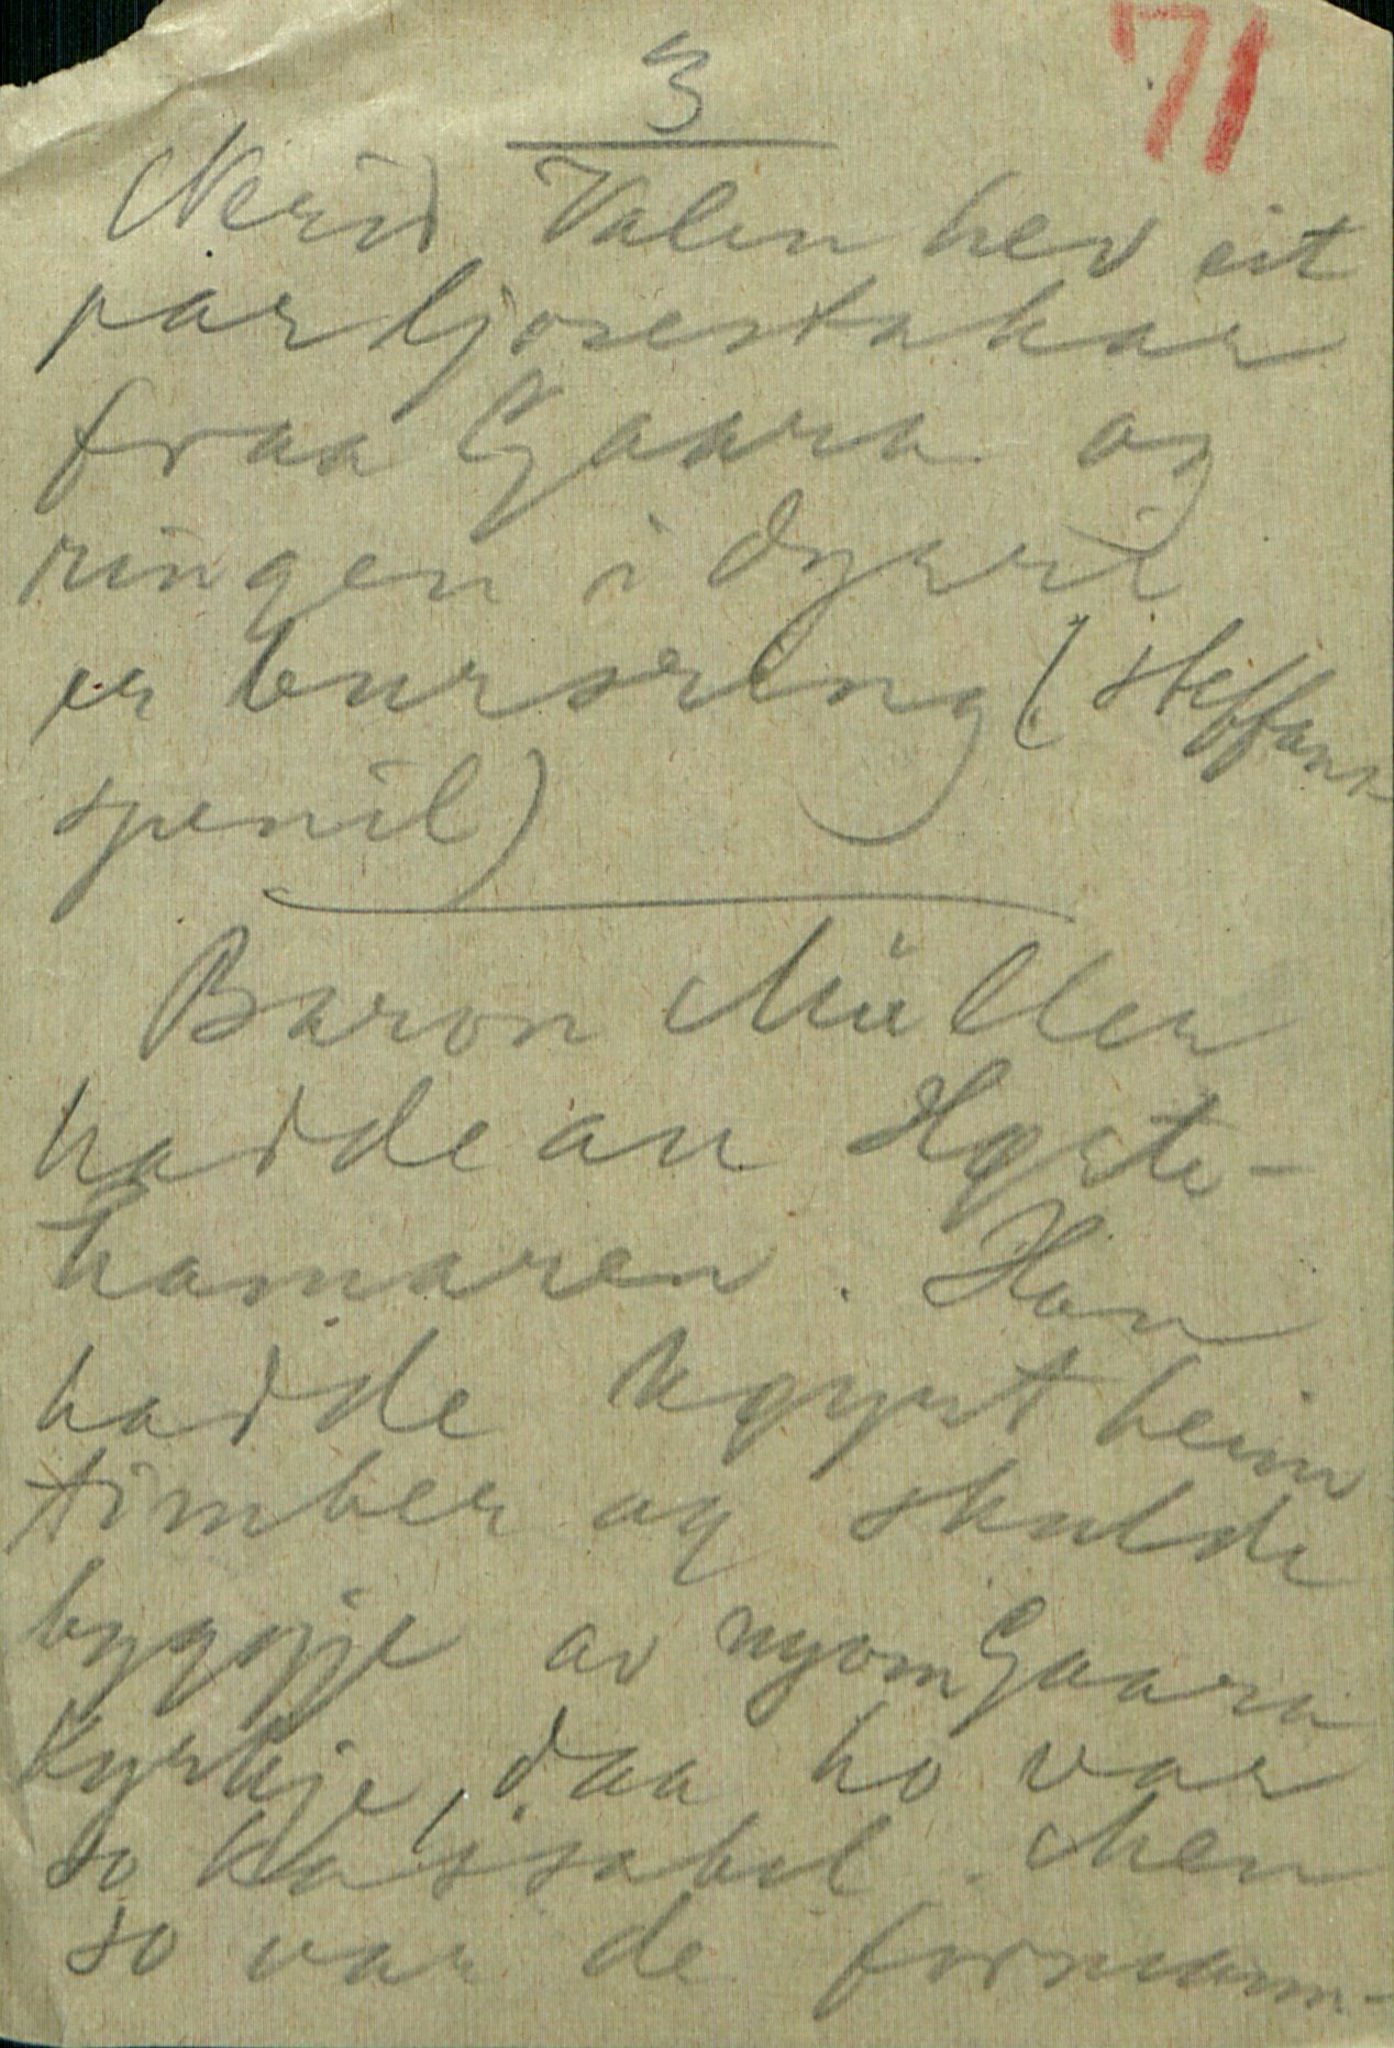 3
71
Neri Valen hev eit
par ljosestakar
fraa Gaara og
ringen i dynni
er bursring (steffans
spenil)
Baron Müller
hadde an Hgste-
hamaren. Han
hadde kgyrt heim
timber og skulde
byggje av nyom Gaara
kyrkje, daa ho var
so kassabel. Men
so var de formann-